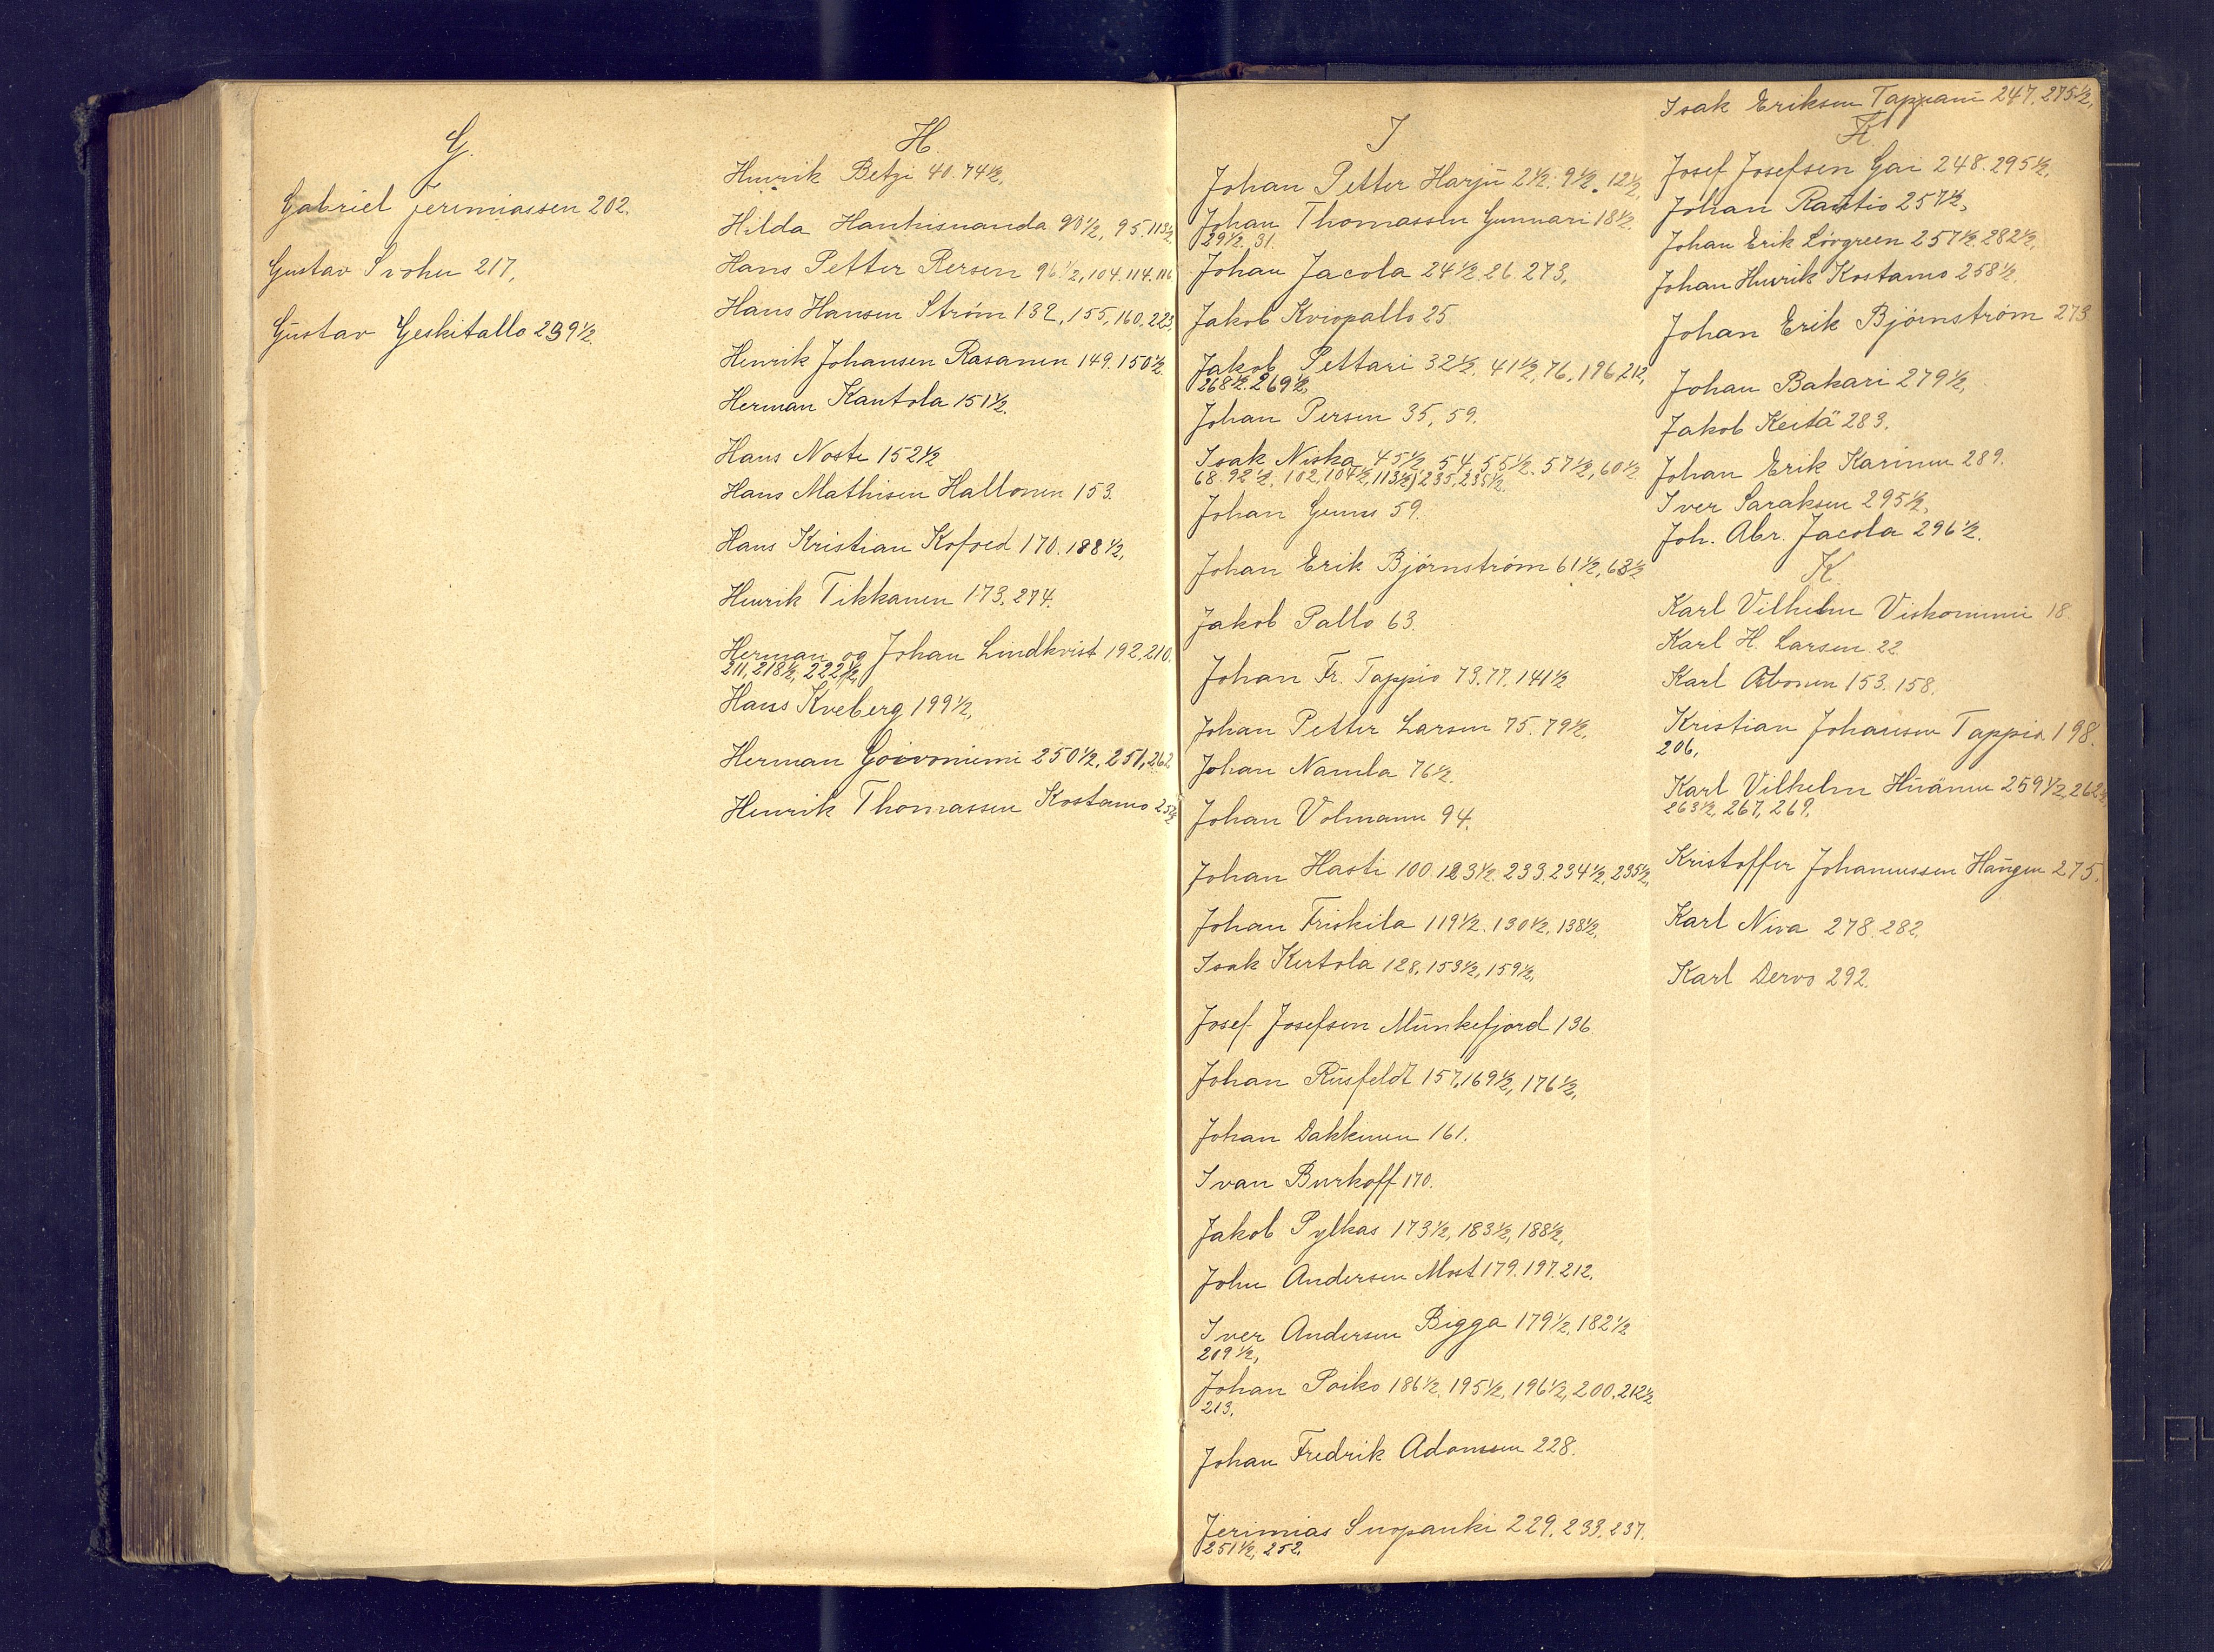 G.
Gabriel Jeremiassen 202.
Gustav Svohn 217,
Gustav Geskitallo 239½.
H.
Henrik Betzi 40. 74½,
Hilda Hanhisuanda 90½, 95. 113½,
Hans Petter Persen 96.½, 104. 114. 116
Hans Hansen Strøm 132, 155, 160, 223,
Henrik Johansen Rasanen 149. 150½.
Herman Kantola 151½.
Hans Noste 152½
Hans Mathisen Hallonen 153.
Hans Kristian Kofoed 170. 188½,
Henrik Tikkanen 173, 274.
Herman og Johan Lindkvist 192, 210.
211, 218½, 222½,
Hans Kveberg 199½,
Herman Goivoniemi 250½, 251, 262
Henrik Thomassen Kostamo 252½
J
Johan Petter Harju 2½. 9½. 12½,
Johan Thomassen Gunnari 18½.
29½. 31.
Johan Jacola 24½. 26. 273,
Jakob Kviopallo 25.
Jakob Pettari 32½. 41½, 76, 196, 212,
268½. 269½.
Johan Persen 35, 59.
Isak Niska 45½. 54. 55½. 57½, 60½.
68. 92½, 102, 104½, 113½, 235, 235½.
Johan Genus 59.
Johan Erik Bjørnstrøm 61½, 63½
Jakob Pallo 63.
Johan Fr. Tappio 73. 77. 141½
Johan Petter Larsen 75. 79½,
Johan Namla 76½.
Johan Volmann 94.
Johan Hasti 100. 123½. 233. 234½. 235½.
Johan Friskila 119½. 130½. 138½.
Isak Kertola 128, 153½, 159½,
Josef Josefsen Munkefjord 136.
Johan Rusfeldt 157, 169½, 176½,
Johan Dakkinen 161.
Ivan Burkoff 170.
Jakob Pylkas 173½, 183½, 188½,
John Andersen Most 179. 197. 212.
Iver Andersen Bigga 179½, 182½
209½,
Johan Poiko 186½, 195½, 196½, 200, 212½
213.
Johan Fredrik Adamsen 228.
Jerimias Suopanki 229. 233. 237.
251½, 252.
Isak Eriksen Tappani 247, 275½,
K.
Josef Josefsen Gai 248. 295½,
Johan Rautio 257½,
Johan Erik Lövgreen 257½. 282½,
Johan Henrik Kostamo 258½,
Johan Erik Bjørnstrøm 273
Johan Bakari 279½,
Jakob Keitä 283.
Johan Erik Karinen 289.
Iver Saraksen 295½,
Joh. Abr. Jacola 296½.
K.
Karl Vilhelm Viskaniemi 18
Karl H. Larsen 22.
Karl Abonen 153. 158.
Kristian Johansen Tappio 198.
206,
Karl Vilhelm Huänen 259½, 262½
263½, 267, 269.
Kristoffer Johannessen Haugen 275.
Karl Niva 278. 282.
Karl Dervo 292.